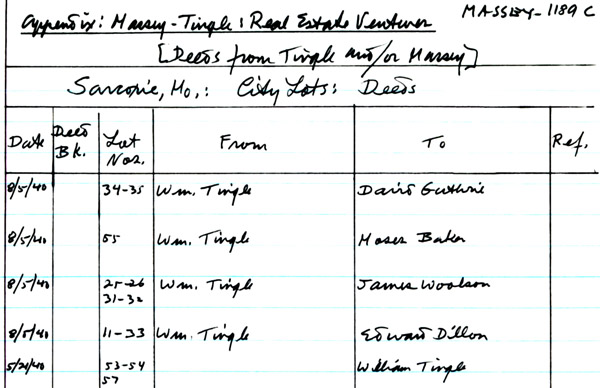 MASSEY-1189 C
Appendix: Massey-Tingle: Real Estate Ventures
[Deeds from Tingle and/or Massey]
Sarcoxie, Mo.: City Lots: Deeds
Date Deed Bk. Lot Nos. From To Ref.
8/5/40 34-35 Wm. Tingle David Guthrie
8/5/40 55 Wm. Tingle Moses Baker
8/5/40 25-26 Wm. Tingle James Woolson
31-32
8/5/40 11-33 Wm. Tingle Edward Dillon
5/21/40 53-54 William Tingle
57